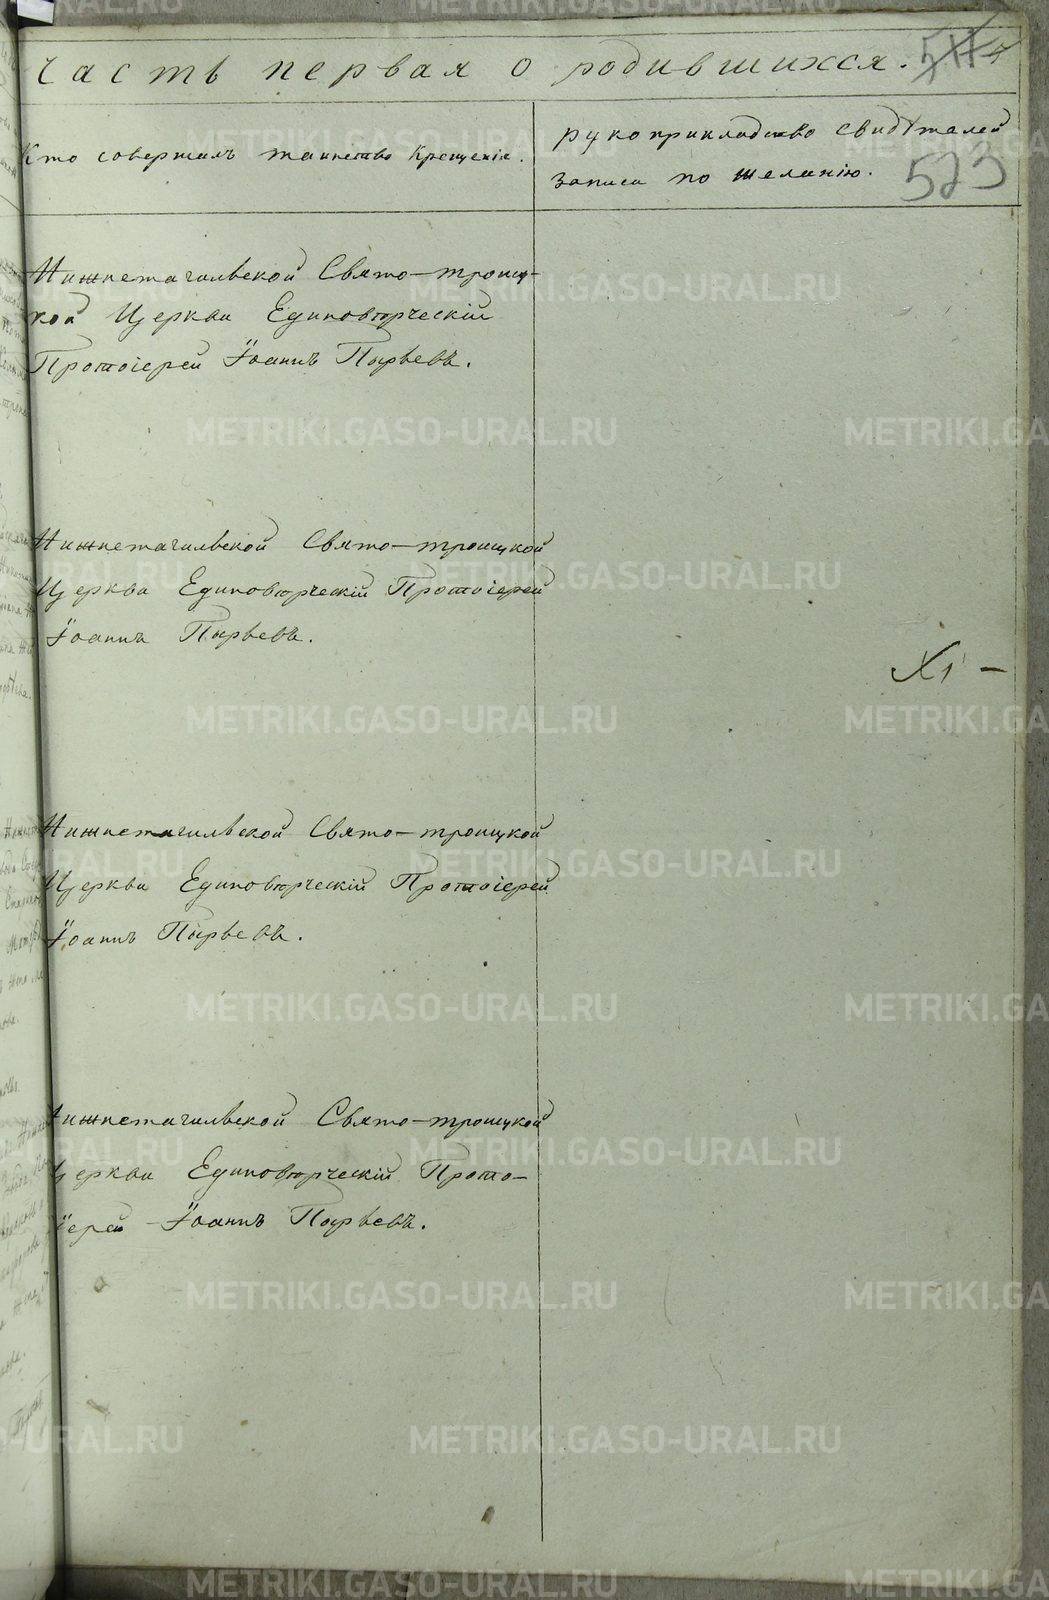 Часть первая о родившихся.
523
Кто совершалъ таинство Крещенія.
рукоприкладство свидѣтелей
записи по желанію.
Нижнетагильской Свято-троиц-
кой Церкви Единовѣрческій
Протоіерей Іоаннъ Пырьевъ.
Нижнетагильской Свято-троицкой
Церкви Единовѣрческій Протоіерей
Іоаннъ Пырьевъ.
Нижнетагильской Свято-троицкой
Церкви Единовѣрческій Протоіерей
Іоаннъ Пырьевъ.
Нижнетагильской Свято-троицкой
Церкви Единовѣрческій Прото-
іерей Іоаннъ Пырьевъ.
METRIKI.GASO-URAL.RU